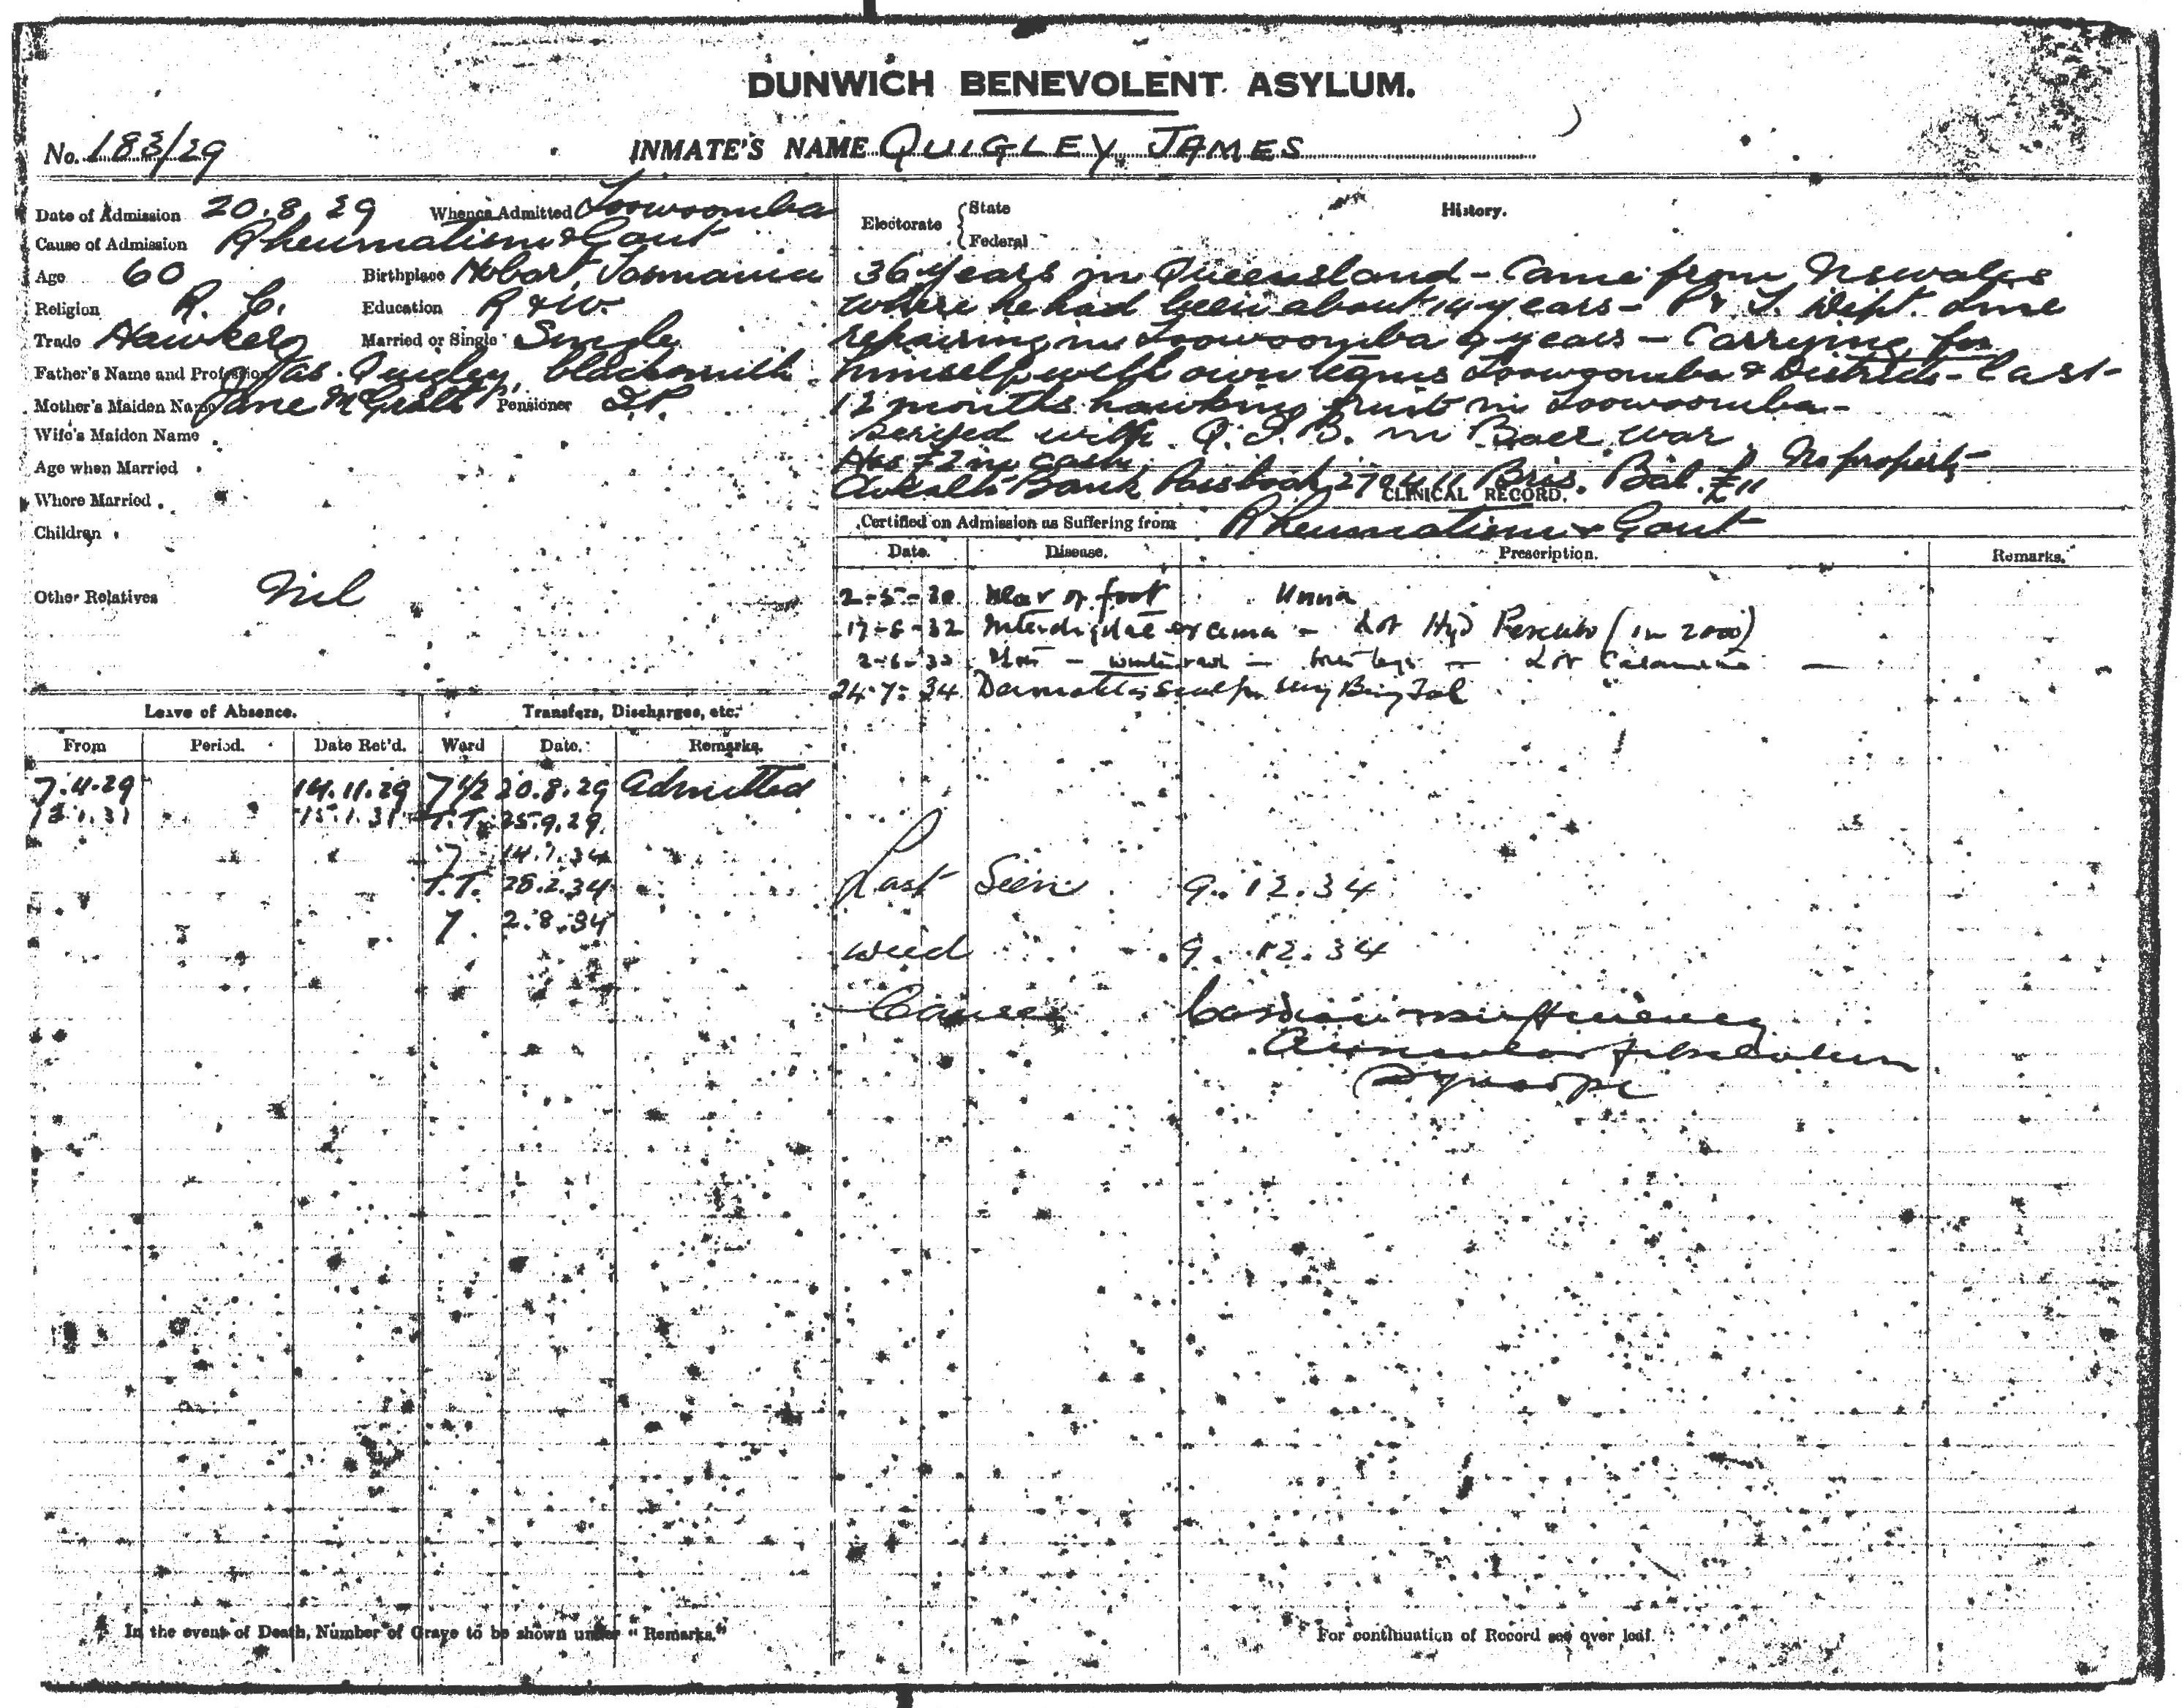 DUNWICH BENEVOLENT ASYLUM.
No. 183/29 INMATE'S NAME QUIGLEY JAMES
Date of Admission 20.8.29 Whence Admitted Toowoomba
Cause of Admission Rheumatism & Gout
Age 60 Birthplace Hobart, Tasmania
Religion R. C. Education R & W.
Trade Hawker Married or Single Single
Father's Name and Profession Jas. Quigley, blacksmith
Mother's Maiden Name Jane McGrath Pensioner I.P.
Wife's Maiden Name
Age when Married
Where Married
Children
Other Relatives Nil
Electorate State Federal
History.
36 years in Queensland - Came from N S Wales
where he had been about 14 years - P & T. Dept. line
repairing in Toowoomba 9 years - Carrying for
himself with own teams Toowoomba & Districts - last
12 months hawking fruit in Toowoomba -
Served with Q. I. B. in Boer War.
Has £2 in cash, No property
C'wealth Bank Passbook Bris. Bal. £11
CLINICAL RECORD.
Certified on Admission as Suffering from Rheumatism & Gout
Date. Disease. Prescription. Remarks.
2-5-30 Ulcer of foot Unna
17-5-32 Interdigital eczema - Lot Hyd Perchlor (in 2000)
2-6-33 - Lot Calamine
24-7-34 Dermatitis
Leave of Absence. Transfers, Discharges, etc.
From Period. Date Ret'd. Ward Date. Remarks.
7.11.29 14.11.29 7 1/2 20.8.29 Admitted
13.1.31 15.1.31 T.T. 25.9.29
7 14.1.34
T.T. 28.2.34
7. 2.8.34
Last Seen 9.12.34
Died 9.12.34
Causes Cardiac insufficiency
Auricular fibrillation
Syncope
In the event of Death, Number of Grave to be shown under "Remarks."
For continuation of Record see over leaf.